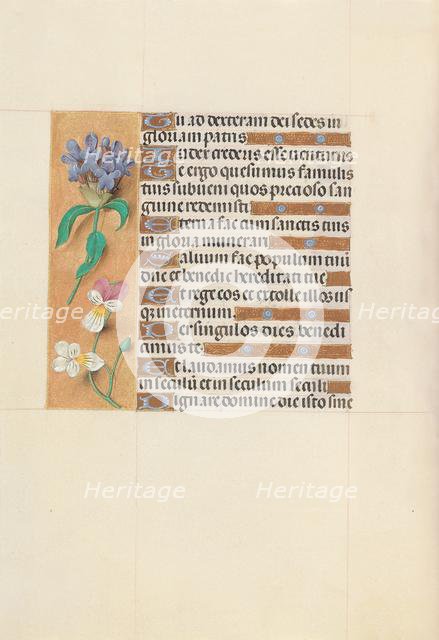 Tu ad dexteram dei sedes in
gloria patris
Iudex crederis esse uenturus
Te ergo quesumus famulis
tuis subueni quos precioso san
guine redemisti
Eterna fac cum sanctis tuis
in gloria munerari
Saluum fac populum tuū
dñe et benedic hereditati tue
Et rege eos et extolle illos us
que in eternum
Per singulos dies benedi
cimus te
Et laudamus nomen tuum
in seculū et in seculum seculi
Dignare domine die isto sine
Heritage
Heritage
Heritage
Heritage
Heritage
Heritage
Heritage